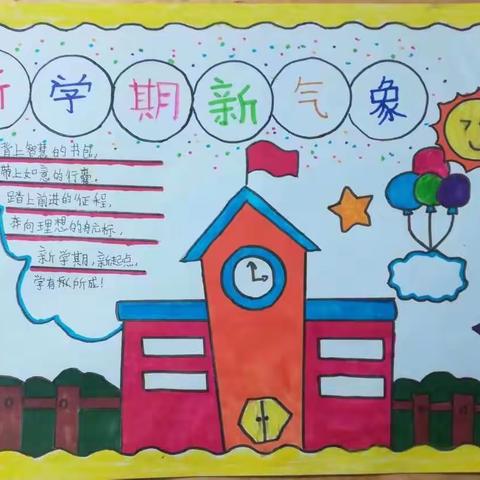 新学期新气象
背上智慧的书包,
带上如意的行囊,
踏上前进的征程,
奔向理想的目标,
新学期,新起点,
学有所成!